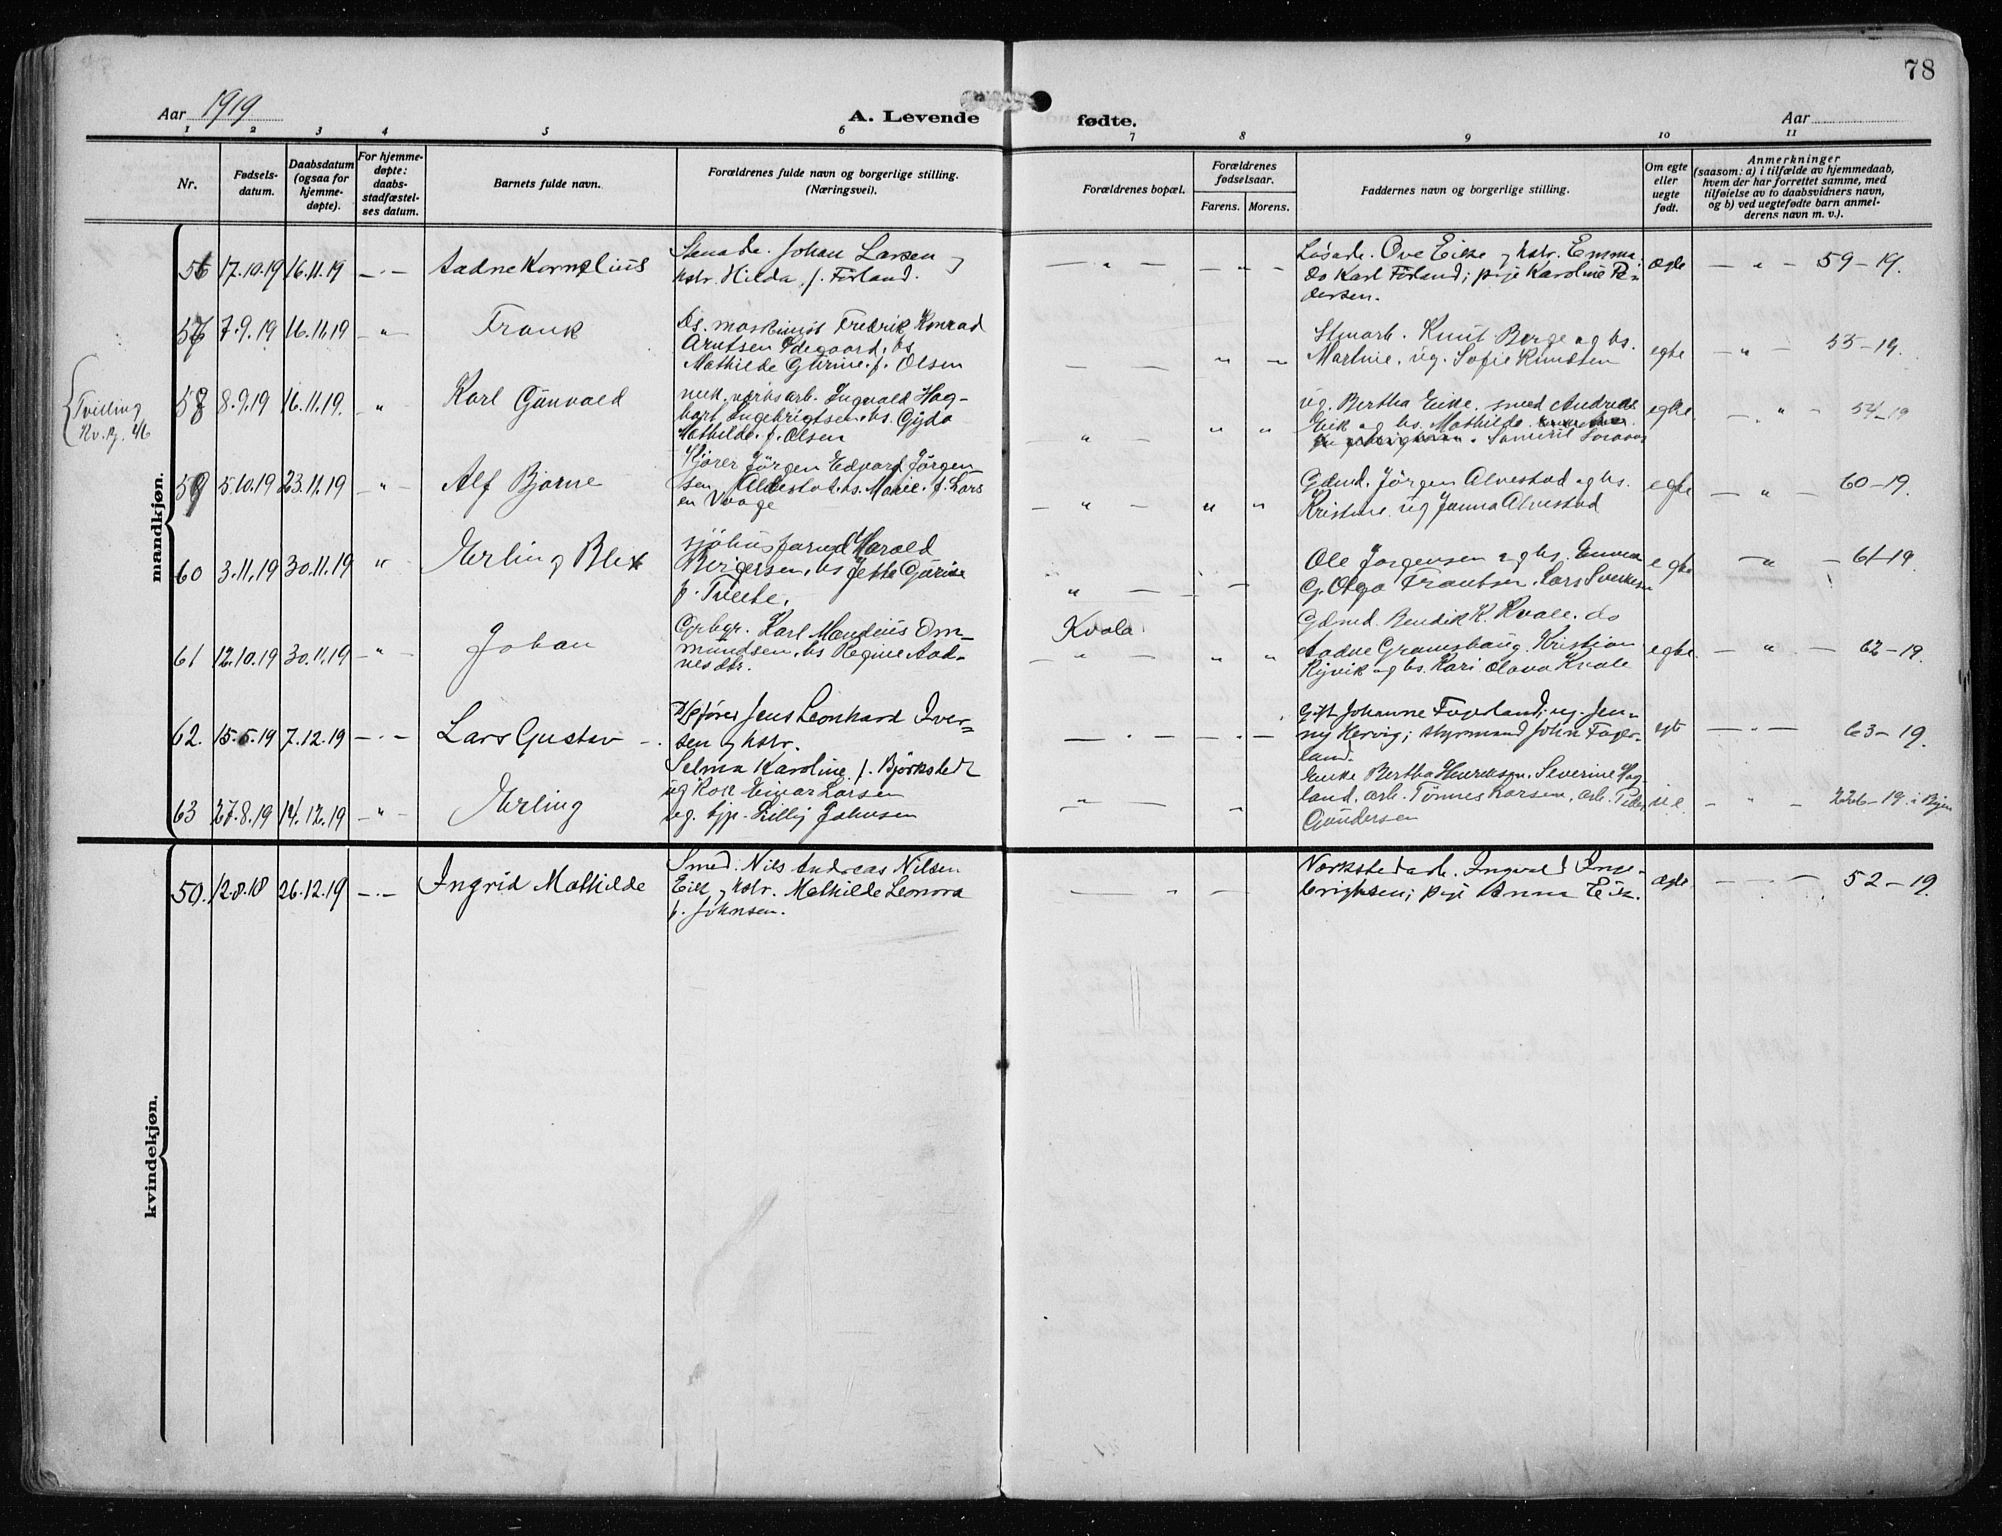 78
Aar 1919
A. Levende fødte.
Aar
1 2 3 4 5 6 7 8 9 10 11
Nr.
Fødsels-
datum.
Daabsdatum
(ogsaa for
hjemme-
døpte).
For hjemme-
døpte:
daabs-
stadfæstel-
ses datum.
Barnets fulde navn.
Forældrenes fulde navn og borgerlige stilling.
(Næringsvei).
Forældrenes bopæl.
Forældrenes
fødselsaar.
Farens. Morens.
Faddernes navn og borgerlige stilling.
Om egte
eller
uegte
født.
Anmerkninger
(saasom: a) i tilfælde av hjemmedaab,
hvem der har forrettet samme, med
tilføielse av to daabsvidners navn,
og b) ved uegtefødte barn anmel-
derens navn m. v.).
mandkjøn.
56 17.10.19 16.11.19 — Aadne Kornelius
Johan Larsen og
Hilda f. Förland.
Løsarb. Ove Eike og hstr. Emma;
do Karl Förland; pige Karoline Pe-
dersen.
ægte — " — 59-19.
57 7.9.19 16.11.19 " Frank
Ds. maskinist Fredrik Konrad
Arntsen Ödegaard, hs.
Mathilde Gurine f. Olsen
Stenarb. Knut Berge og hs.
Martine. ug. Sofie Knudsen
egte — " — 55-19.
{Tvilling
Kv.kj. 46
58 8.9.19 16.11.19. " Karl Gunvald
mek. verksarb. Ingvald Hag-
bart Ingebrigtsen. hs. Gyda
Mathilde f. Olsen
ug. Bertha Eike. smed Andreas
Eik og hs. Mathilde.
egte — " — 54-19
59 5.10.19 23.11.19 " Alf Bjarne
Kjører Jörgen Edvart Jörgen-
sen hs. Marie f. Lars
en Vaage
Gdmd. Jörgen Alvestad og hs.
Kristine ug Janna Alvestad
egte — " — 60-19.
60 3.11.19 30.11.19 " Erling Blix
sjøhusformd Harald
Birgersen, hs Jetta Gurine
f. Tveite.
Ole Jörgensen og hs. Emma
G. Olga Frantsen. Lars
egte — " — 61-19
61 12.10.19 30.11.19 " Johan
Grbgr. Karl Mandius Om-
mundsen. hs Regine Aad-
nesdtr.
Kvala
Gdmd. Bendik K. Kvale. do
Aadne Grannshaug. Kristian
og hs. Kari Olava Kvale
egte — " — 62-19.
62. 15.6.19 7.12.19 — Lars Gustav
Jens Leonhard Iver-
sen og hstr.
Selma Karoline f. Björkstedt
Gift Johanne Fagerland; ug. Jen-
ny Kervig; styrmand John Fager-
land.
egte — 63-19.
63 27.8.19 14.12.19 " Erling
ug Kok Einar Larsen
ug. tjp. Lilly Johnsen
Enke Bertha Henriksen. Severine Hag
land. arb. Tönnes Larsen, arb. Peder
Gundersen
ue — " — 226-19 i Byen
kvindekjøn.
50. 12.8.18 26.12.19 — Ingrid Mathilde
Smed. Nils Andreas Nilsen
Eik og hstr. Mathilde Lenora
f. Johnsen.
Verkstedarb. Ingvald Inge-
brigtsen; pige Anna Eik.
ægte — 52-19.